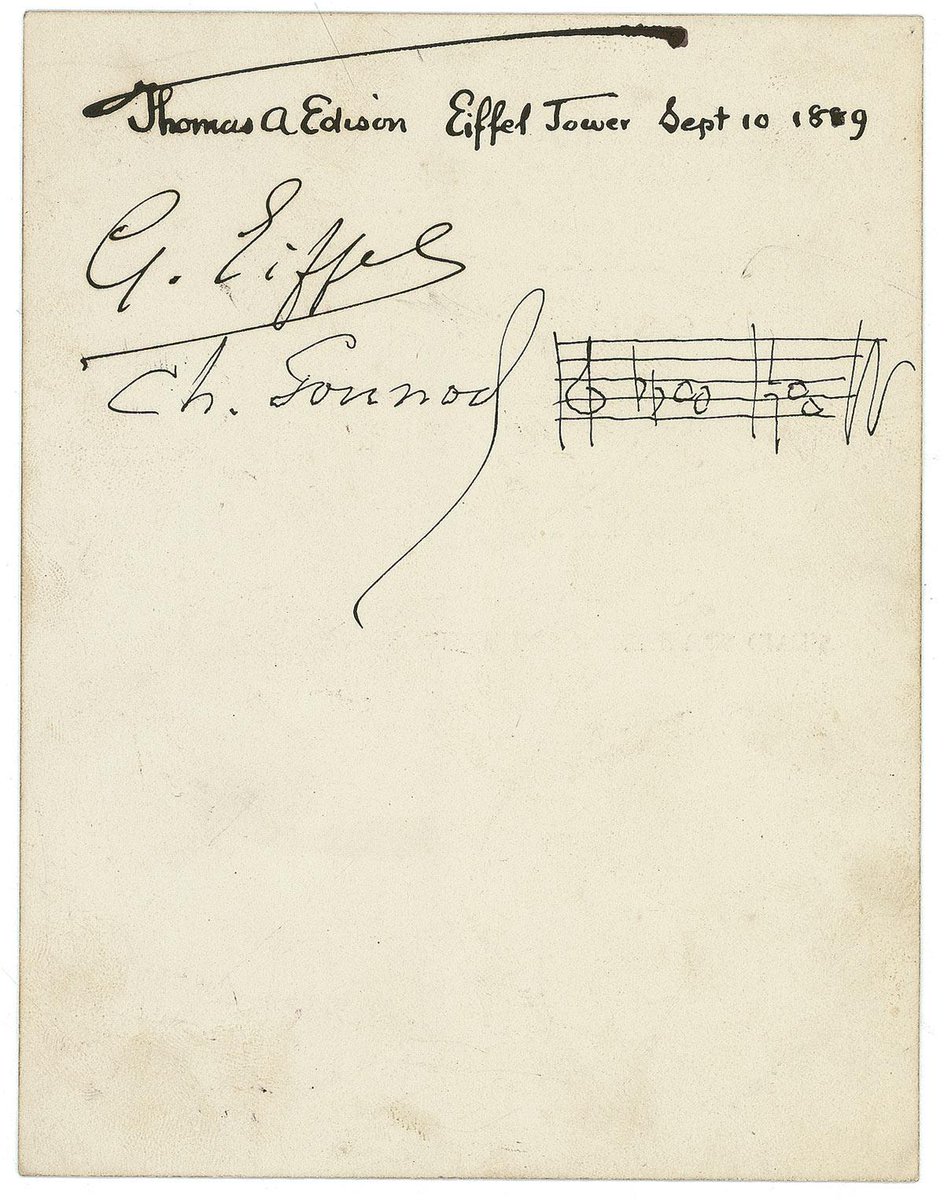 Thomas A Edison Eiffel Tower Sept 10 1889
G. Eiffel
Ch. Gounod